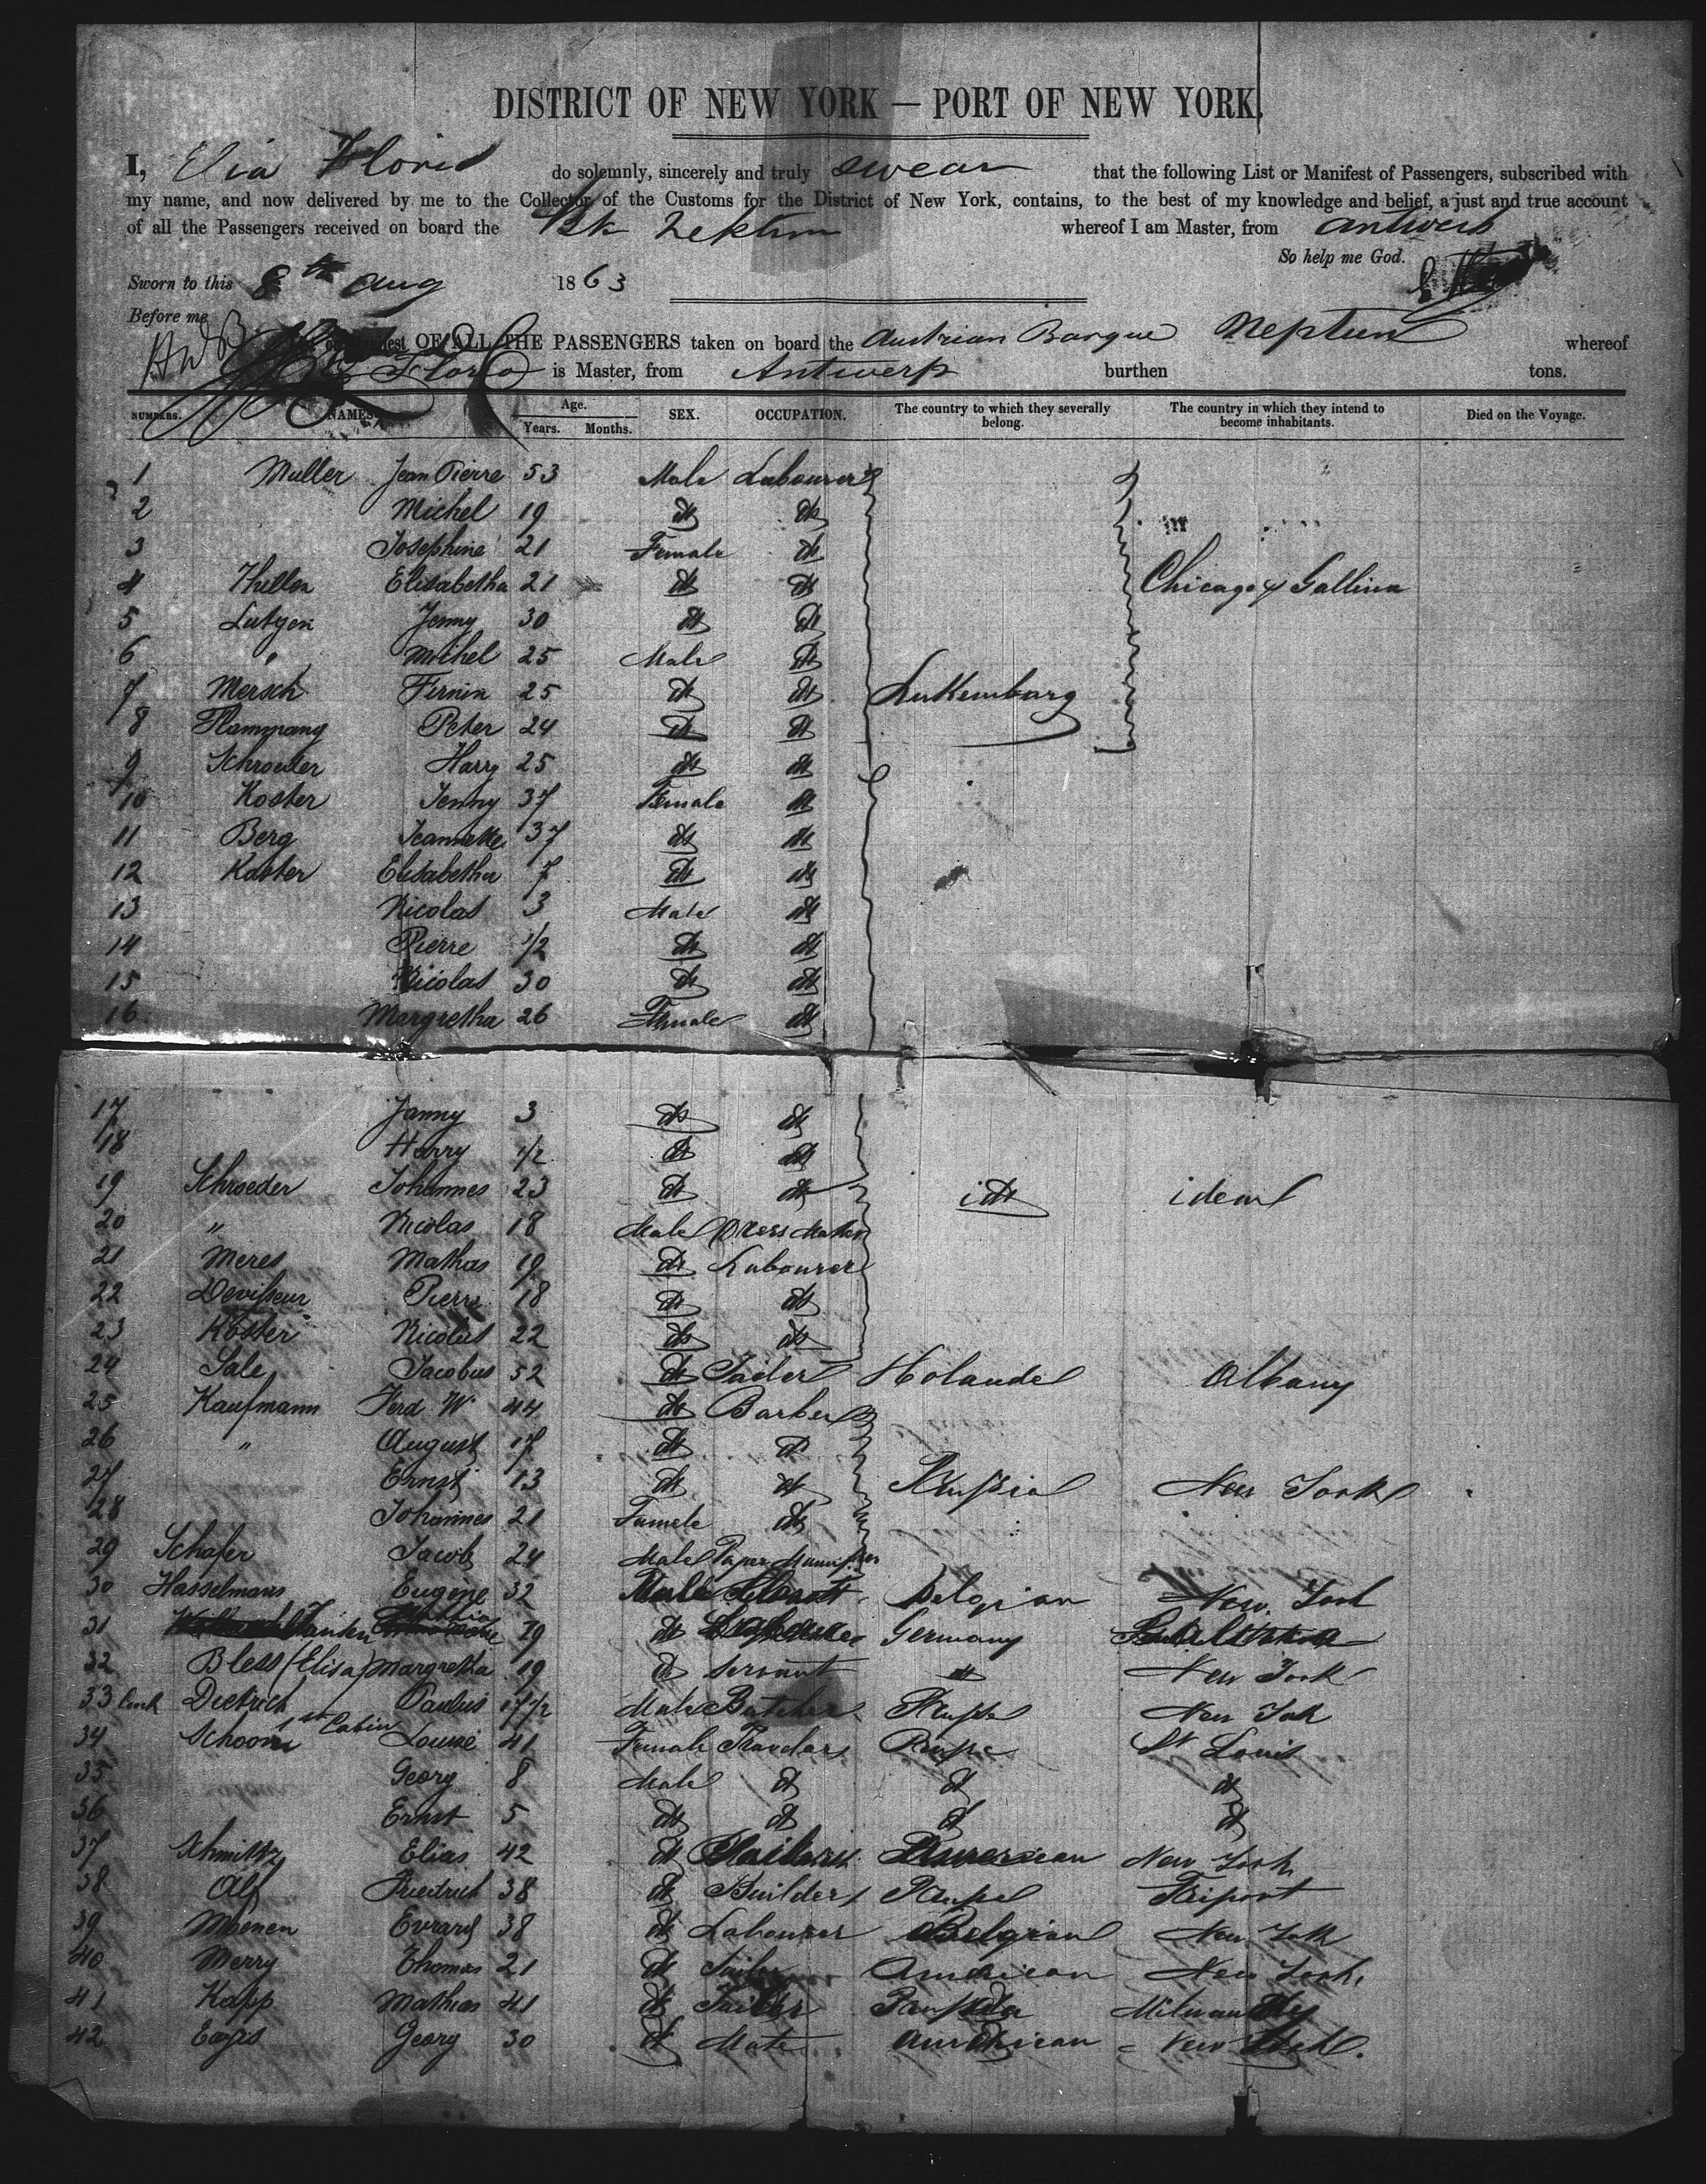 DISTRICT OF NEW YORK — PORT OF NEW YORK.
I, Elia Florio do solemnly, sincerely and truly swear that the following List or Manifest of Passengers, subscribed with
my name, and now delivered by me to the Collector of the Customs for the District of New York, contains, to the best of my knowledge and belief, a just and true account
of all the Passengers received on board the Bk whereof I am Master, from Antwerp
So help me God.
Sworn to this 8th Aug 1863
Before me
OF ALL THE PASSENGERS taken on board the Austrian Barque Neptun whereof
Florio is Master, from Antwerp burthen tons.
NUMBERS. NAMES. Age. Years. Months. SEX. OCCUPATION. The country to which they severally belong. The country in which they intend to become inhabitants. Died on the Voyage.
1 Muller Jean Pierre 53 Male Labourer
2 Michel 19 do do
3 Josephine 21 Female do
4 Elisabetha 21 do do Chicago & Gallina
5 Jenny 30 do do
6 " Michel 25 Male do
7 Mersch Firmin 25 do do Luxemburg
8 Flammang Peter 24 do do
9 Schroeder Harry 25 do do
10 Koster Jenny 37 Female do
11 Berg Jeannette 37 do do
12 Koster Elisabetha 7 do do
13 Nicolas 3 Male do
14 Pierre 1/2 do do
15 Nicolas 30 do do
16 Margretha 26 Female do
17 Janny 3 do do
18 Harry 1/2 do do
19 Schroeder Johannes 23 do do ido idem
20 " Nicolas 18 Male Dress Maker
21 Meres Mathias 19 do Labourer
22 Pierre 18 do do
23 Koster Nicolas 22 do do
24 Sale Jacobus 52 do Tailer Holande Albany
25 Kaufmann Ferd W. 44 do Barber
26 " August 17 do do
27 Ernst 13 do do Prussia New York
28 Johannes 21 Famele do
29 Schafer Jacob 24 Male Paper
30 Hasselmans Eugene 32 Male Belgian New York
31 do Germany
32 Bless (Elisa) Margretha 19 do Servant do New York
33 Dietrich Paulus 17 1/2 Male Butcher New York
1st Cabin
34 Louise 41 Female St Louis
35 Georg 8 Male do do do
36 Ernst 5 do do do do
37 Schmitz Elias 42 do American New York
38 Alf Friedrich 38 do Builder Friport
39 Moenen Evrard 38 do Labourer Belgian New York
40 Merry Thomas 21 do American New York
41 Kapp Mathias 41 do Tailor
42 Georg 30 do Mate American New York.